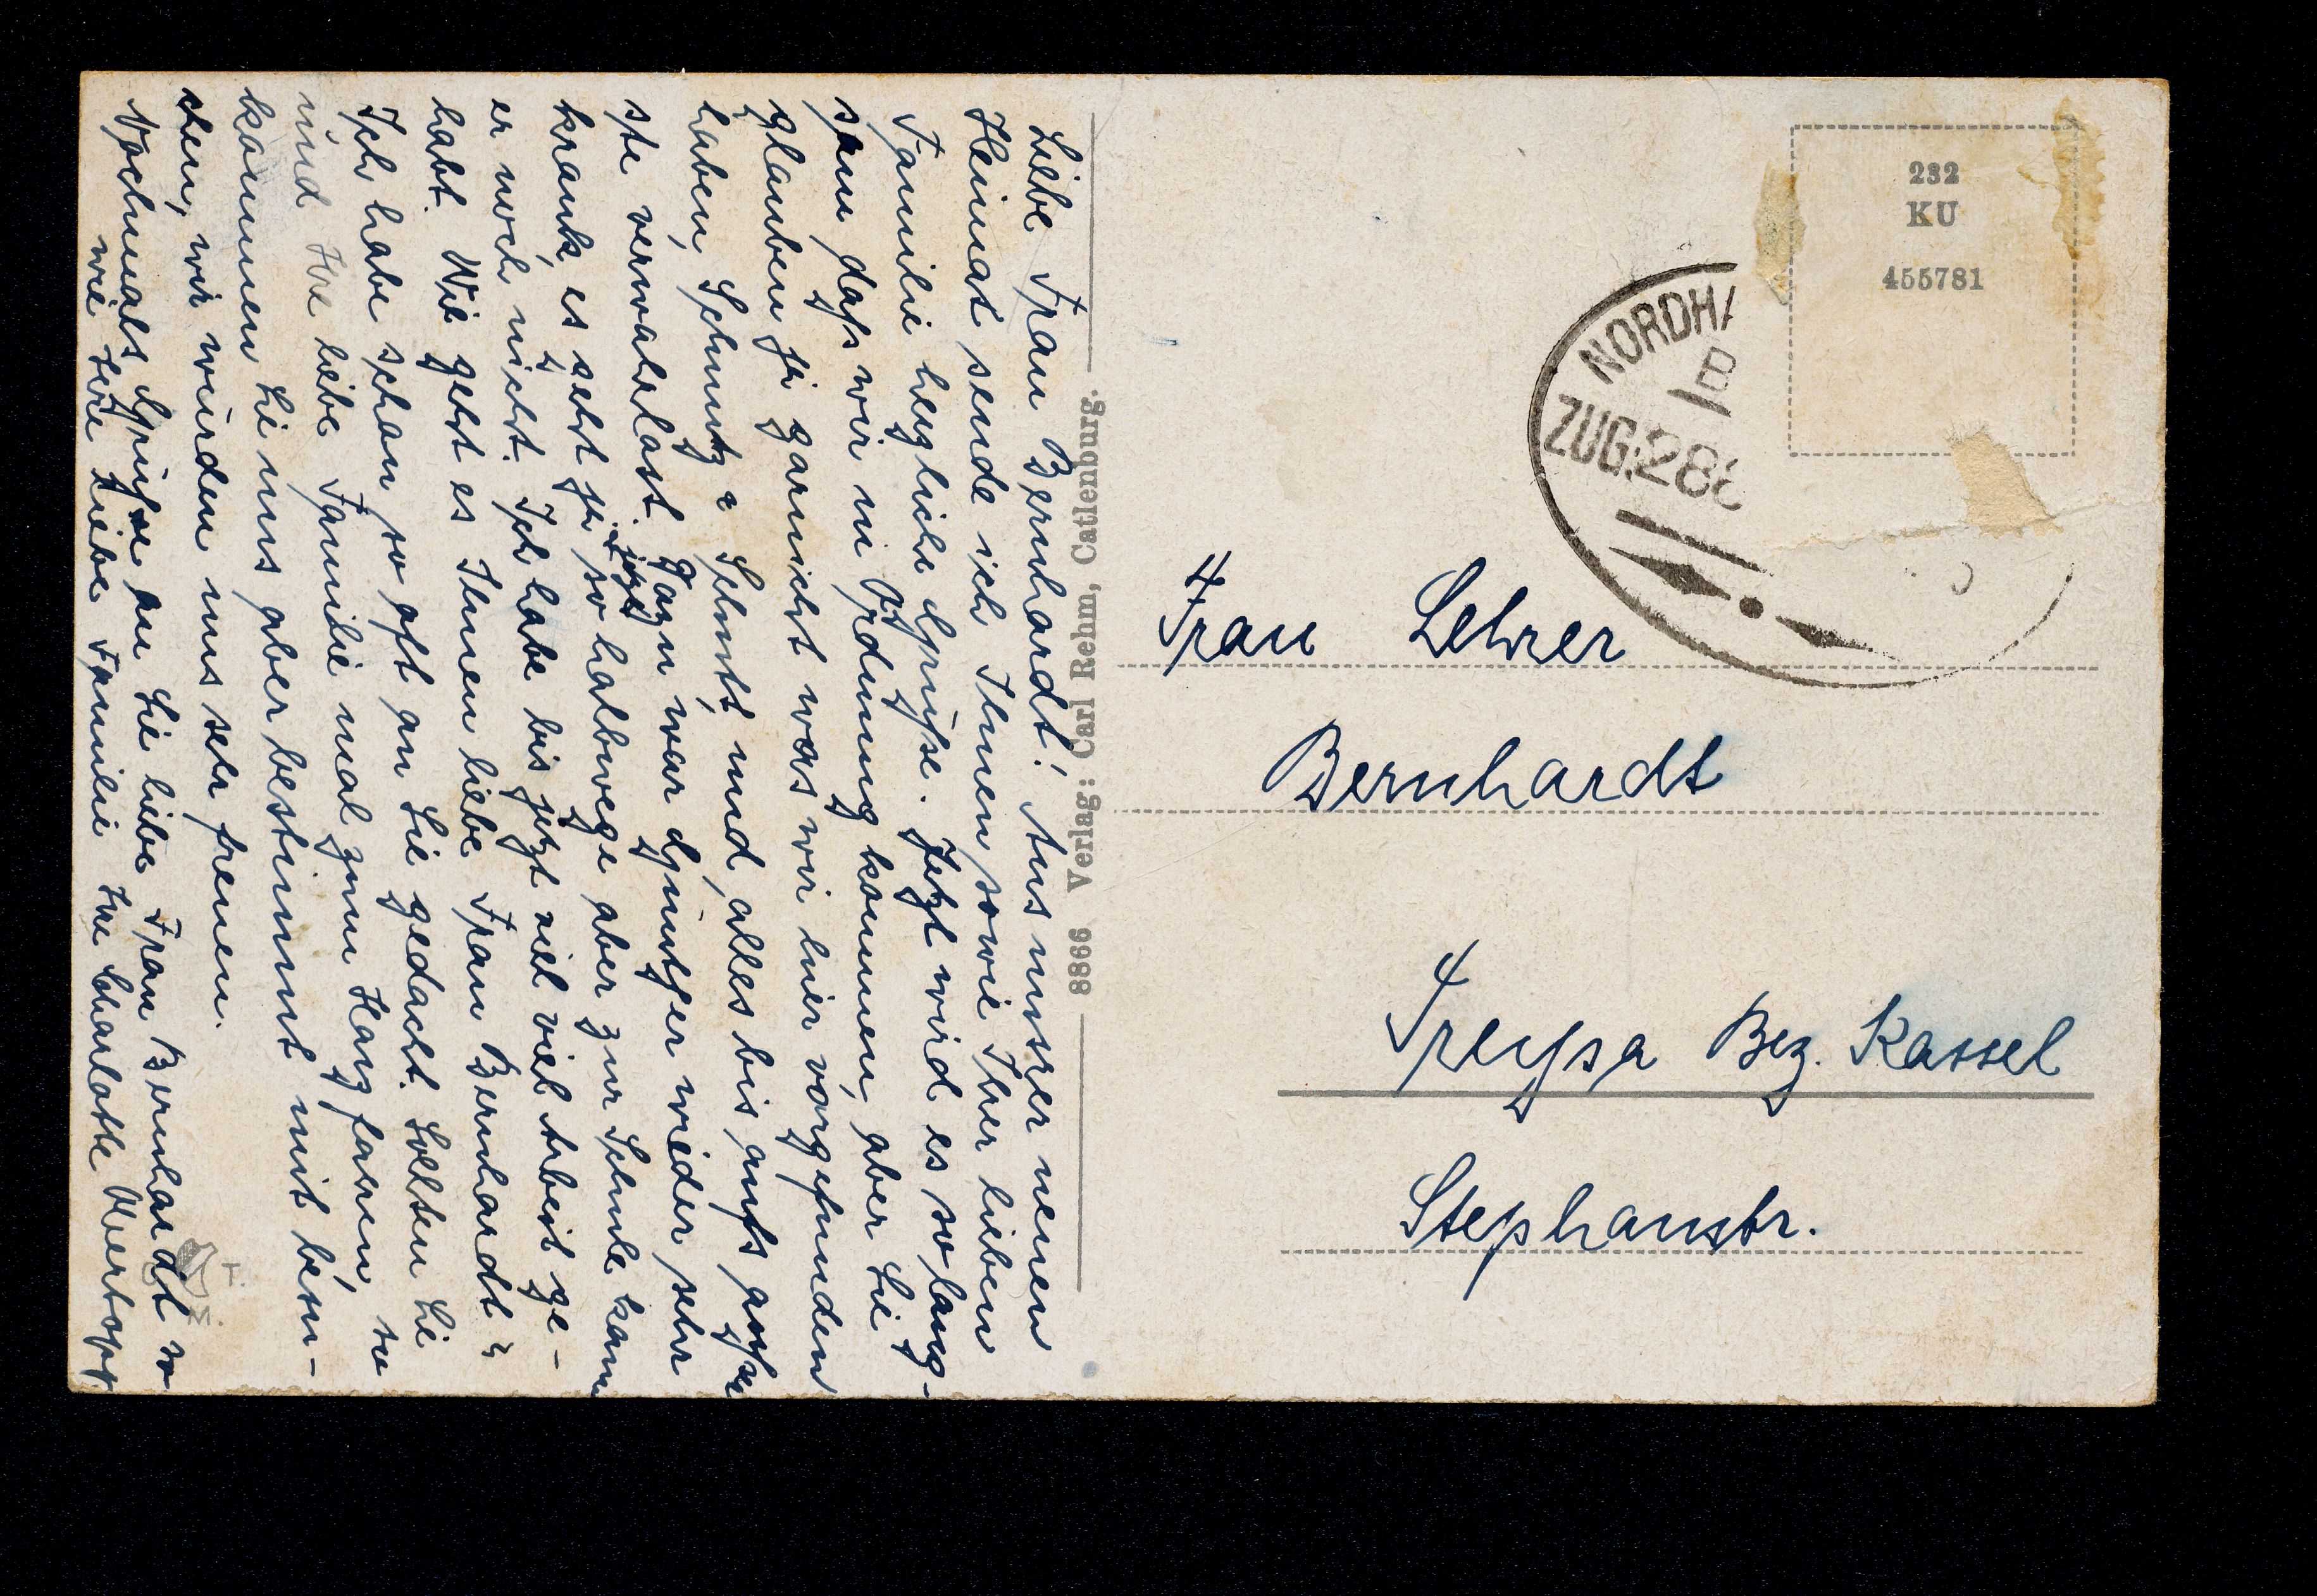 Liebe Frau Bernhardt! Aus unsrer neuen
Heimat sende ich Ihnen sowie Ihrer lieben
Familie herzliche Grüße. Jetzt wird es so lang-
sam daß wir in Ordnung kommen, aber Sie
glauben ja garnicht was wir hier vorgefunden
haben, Schmutz u Schutt, und alles bis aufs
ste verwahrlost. Dazu war Günther wieder sehr
krank, es geht ja jetzt so halbwege aber zur Schule kann
er noch nicht. Ich habe bis jetzt viel viel Arbeit ge-
habt. Wie geht es Ihnen liebe Frau Bernhardt?
Ich habe schon so oft an Sie gedacht. Sollten Sie
und Ihre liebe Familie mal zum Harz fahren, so
kommen Sie uns aber bestimmt mit besu-
chen, wir würden uns sehr freuen.
Nochmals Grüße an Sie liebe Frau Bernhardt so
wie Ihre liebe Familie Ihre Charlotte
8866 Verlag: Carl Rehm, Catlenburg.
232
KU
455781
NORDHA
B
ZUG:288
Frau Lehrer
Bernhardt
Treysa Bez. Kassel
Stephanstr.